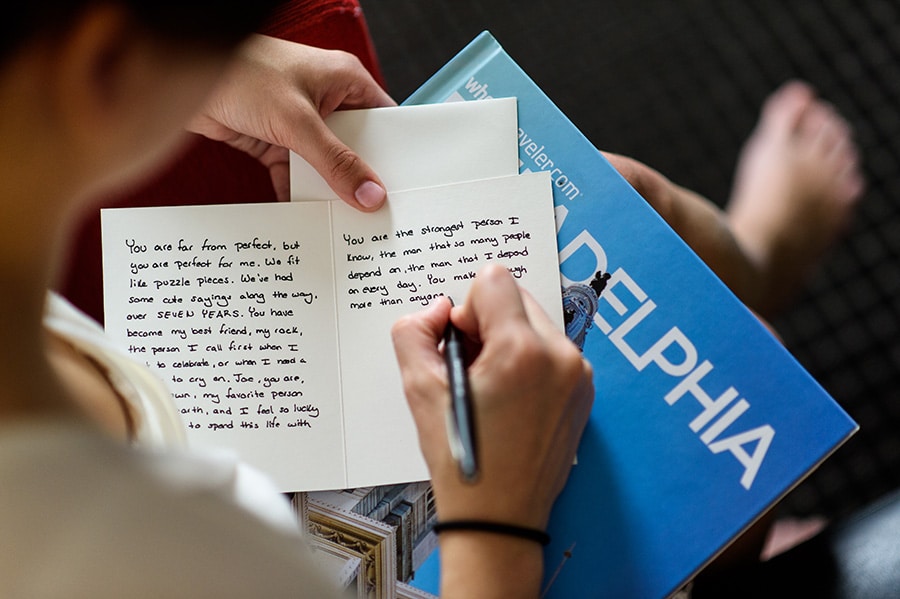 You are far from perfect, but
you are perfect for me. We fit
like puzzle pieces. We've had
some cute sayings along the way,
over SEVEN YEARS. You have
become my best friend, my rock,
the person I call first when I
to celebrate, or when I need a
to cry on. Joe, you are,
my favorite person
and I feel so lucky
to spend this life with
You are the strongest person I
know, the man that so many people
depend on, the man that I depend
on every day. You make
more than anyone
ADELPHIA